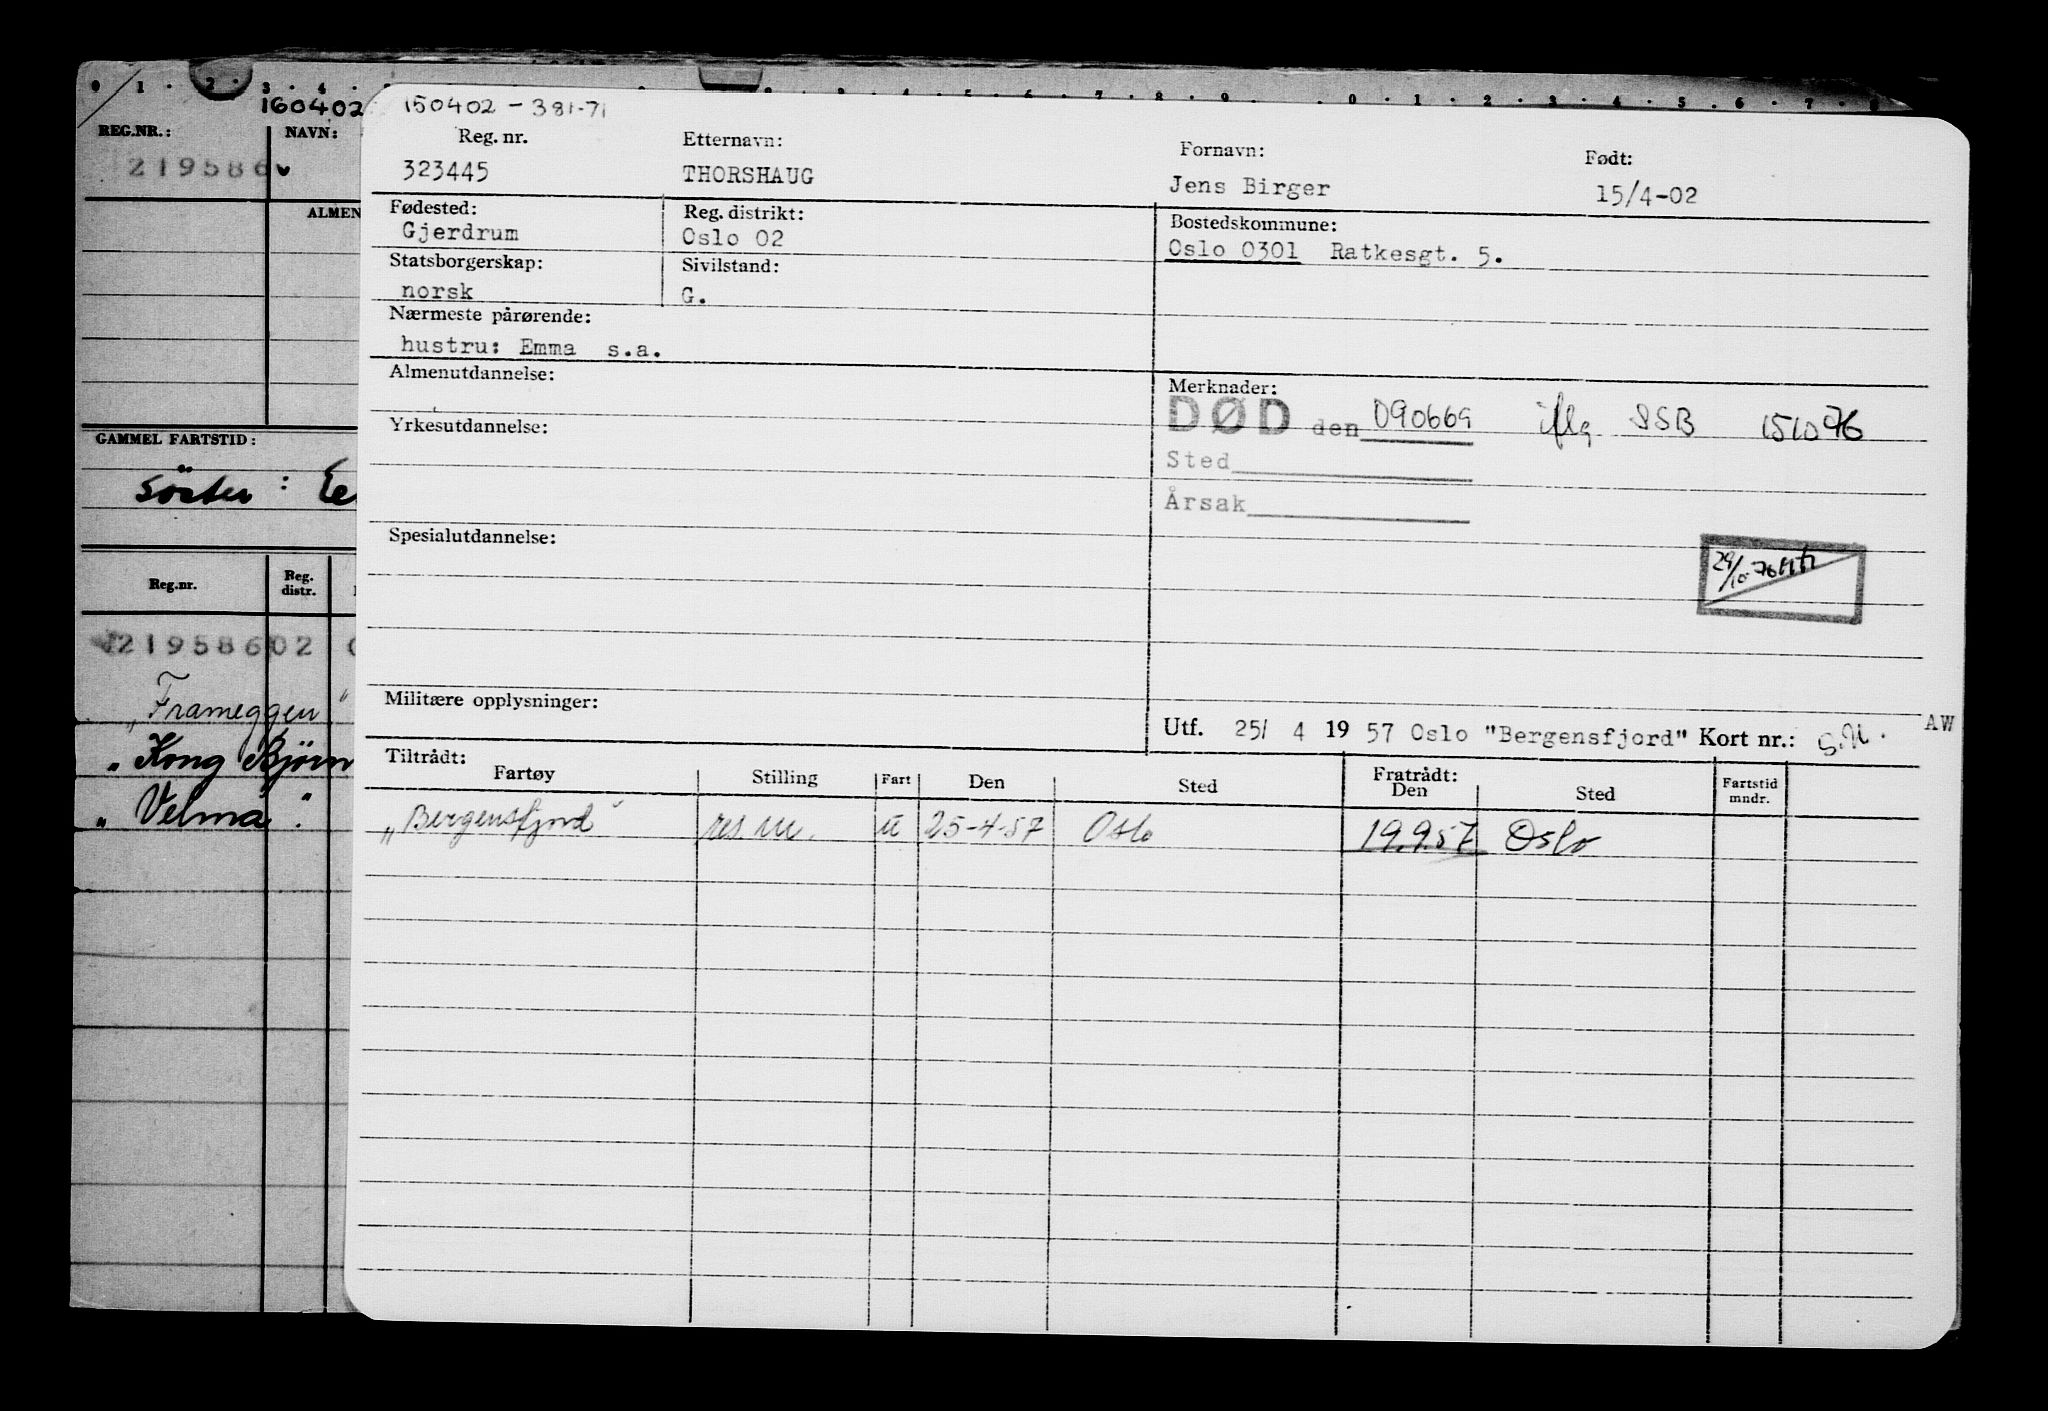 0 1 2 3 4
160402
REG.NR.: NAVN:
219586
ALMEN
GAMMEL FARTSTID:
söster :
Reg.nr. Reg. distr.
219586 02
"Frameggen"
"Kong Bjørn
"Velma".
150402 - 381-71
Reg. nr. Etternavn: Fornavn: Født:
323445 THORSHAUG Jens Birger 15/4-02
Fødested: Reg. distrikt: Bostedskommune:
Gjerdrum Oslo 02 Oslo 0301 Ratkesgt. 5.
Statsborgerskap: Sivilstand:
norsk G.
Nærmeste pårørende:
hustru: Emma s.a.
Almenutdannelse: Merknader:
DØD den 090669 iflg SSB 151076
Yrkesutdannelse:
Sted
Årsak
Spesialutdannelse:
29/10-76
Militære opplysninger:
Utf. 25/ 4 19 57 Oslo "Bergensfjord" Kort nr.: AW
Tiltrådt: Fratrådt:
Fartøy Stilling Fart Den Sted Den Sted Fartstid mndr.
"Bergensfjord" res.m. u 25-4-57 Oslo 19.9.57 Oslo